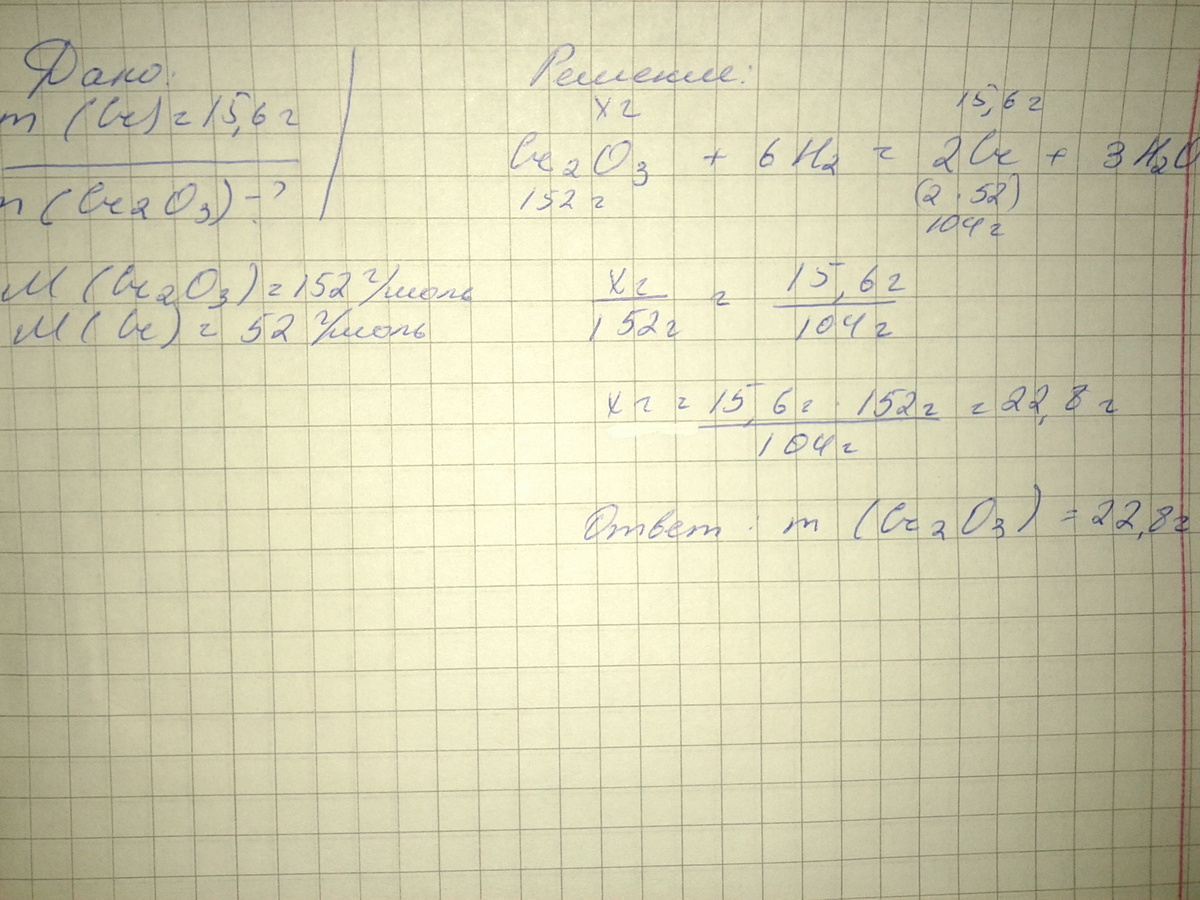 Дано:
m (Cr) = 15,6 г
m (Cr2O3) - ?
M (Cr2O3) = 152 г/моль
M (Cr) = 52 г/моль
Решение:
x г 15,6 г
Cr2O3 + 6 H2 = 2Cr + 3 H2O
152 г (2 · 52)
104 г
x г / 152 г = 15,6 г / 104 г
x г = 15,6 г · 152 г / 104 г = 22,8 г
Ответ : m (Cr2O3) = 22,8 г